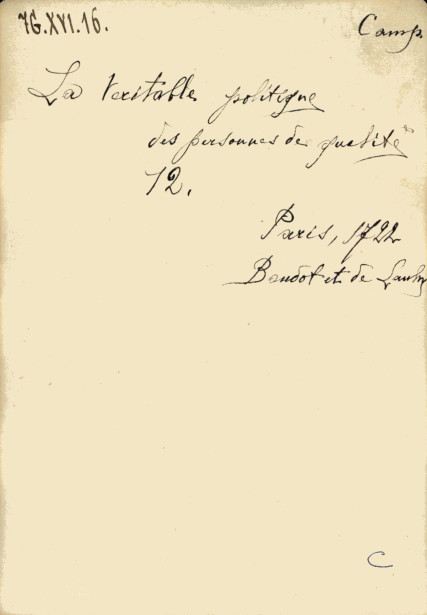 7G.XVI.16.
Camp.
La Veritable politique
des personnes de qualité
12.
Paris, 1722
et de
C